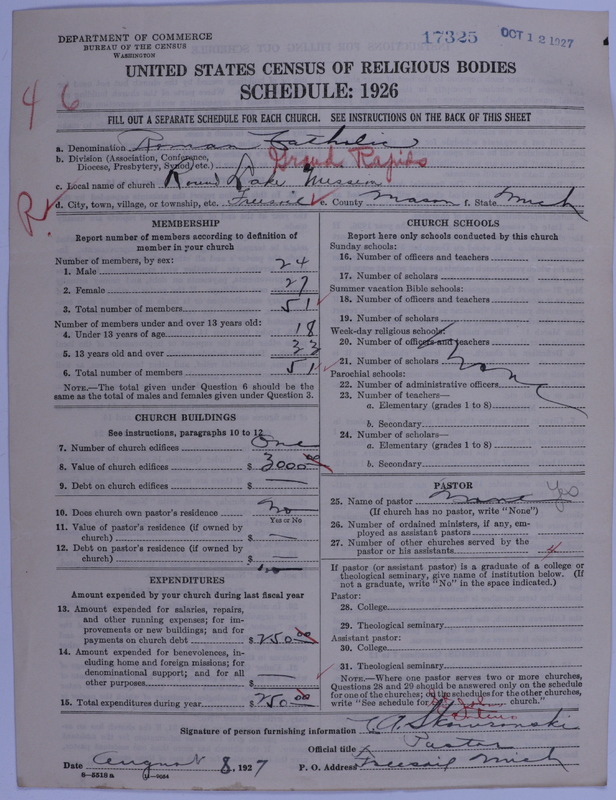 DEPARTMENT OF COMMERCE
BUREAU OF THE CENSUS
WASHINGTON
17325 OCT 12 1927
UNITED STATES CENSUS OF RELIGIOUS BODIES
SCHEDULE: 1926
4 6
FILL OUT A SEPARATE SCHEDULE FOR EACH CHURCH. SEE INSTRUCTIONS ON THE BACK OF THIS SHEET
a. Denomination Roman Catholic
b. Division (Association, Conference,
Diocese, Presbytery, Synod, etc.) Grand Rapids
c. Local name of church Round Lake Mission
R. d. City, town, village, or township, etc. Freesoil e. County Mason f. State Mich
MEMBERSHIP
Report number of members according to definition of
member in your church
Number of members, by sex:
1. Male 24
2. Female 27
3. Total number of members 51
Number of members under and over 13 years old:
4. Under 13 years of age 18
5. 13 years old and over 33
6. Total number of members 51
NOTE.—The total given under Question 6 should be
same as the total of males and females given under Question 3.
CHURCH BUILDINGS
See instructions, paragraphs 10 to 12
7. Number of church edifices One
8. Value of church edifices $ 3000 00
9. Debt on church edifices $ —
10. Does church own pastor's residence No
Yes or No
11. Value of pastor's residence (if owned by
church) $ —
12. Debt on pastor's residence (if owned by
church) $ —
EXPENDITURES
Amount expended by your church during last fiscal year
13. Amount expended for salaries, repairs,
and other running expenses; for im-
provements or new buildings; and for
payments on church debt $ 250 00
14. Amount expended for benevolences, in-
cluding home and foreign missions; for
denominational support; and for all
other purposes $ —
15. Total expenditures during year $ 250 00
CHURCH SCHOOLS
Report here only schools conducted by this church
Sunday schools:
16. Number of officers and teachers
17. Number of scholars
Summer vacation Bible schools:
18. Number of officers and teachers
19. Number of scholars
Week-day religious schools:
20. Number of officers and teachers
21. Number of scholars none
Parochial schools:
22. Number of administrative officers
23. Number of teachers—
a. Elementary (grades 1 to 8)
b. Secondary
24. Number of scholars—
a. Elementary (grades 1 to 8)
b. Secondary
PASTOR
25. Name of pastor None Yes
(If church has no pastor, write "None")
26. Number of ordained ministers, if any, em-
ployed as assistant pastors
27. Number of other churches served by the
pastor or his assistants 4
If pastor (or assistant pastor) is a graduate of a college or
theological seminary, give name of institution below. (If
not a graduate, write "No" in the space indicated.)
Pastor:
28. College
29. Theological seminary
Assistant pastor:
30. College
31. Theological seminary
NOTE.—Where one pastor serves two or more churches,
Questions 28 and 29 should be answered only on the schedule
for one of the churches; on the schedules for the other churches,
write "See schedule for St. John church."
Signature of person furnishing information
Official title Pastor
Date August 8, 1927 P. O. Address Freesoil Mich
8—5518a